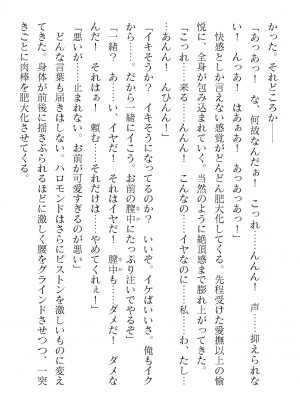 かった。それどころか――
「あっあっ！　な、何故なんだぁ！　こっれ……んんん！　声……抑えられな
い！　んっあ！　はぁぁあ！　あっあっあっ！」
快感としか言えない感覚がどんどん肥大化してくる。先程受けた愛撫以上の愉
悦に、全身が包み込まれていく。当然のように絶頂感まで膨れ上がってきた。
「こっれ……来る……んんん！　こんな……の……イヤなのに……私……わ、たし
……あんん！　んひんん！」
「イキそうか？　イキそうになってるのか？　いいぞ。イケばいいさ。俺もイク
から……。だから一緒にイこう。お前の膣中にたっぷり注いでやるぞ」
「一緒？　あ……い、イヤだ！　それはイヤだ！　膣中も……ダメだ！　ダメな
んだ！　それはぁ！　頼む……それだけは……やめてくれぇ！」
「悪いが……止まれない。お前が可愛すぎるのが悪い」
どんな言葉も届きはしない。ハロモンドはさらにピストンを激しいものに変え
てきた。身体が前後に揺さぶられるほどに激しく腰をグラインドさせつつ、一突
きごとに肉棒を肥大化させてくる。